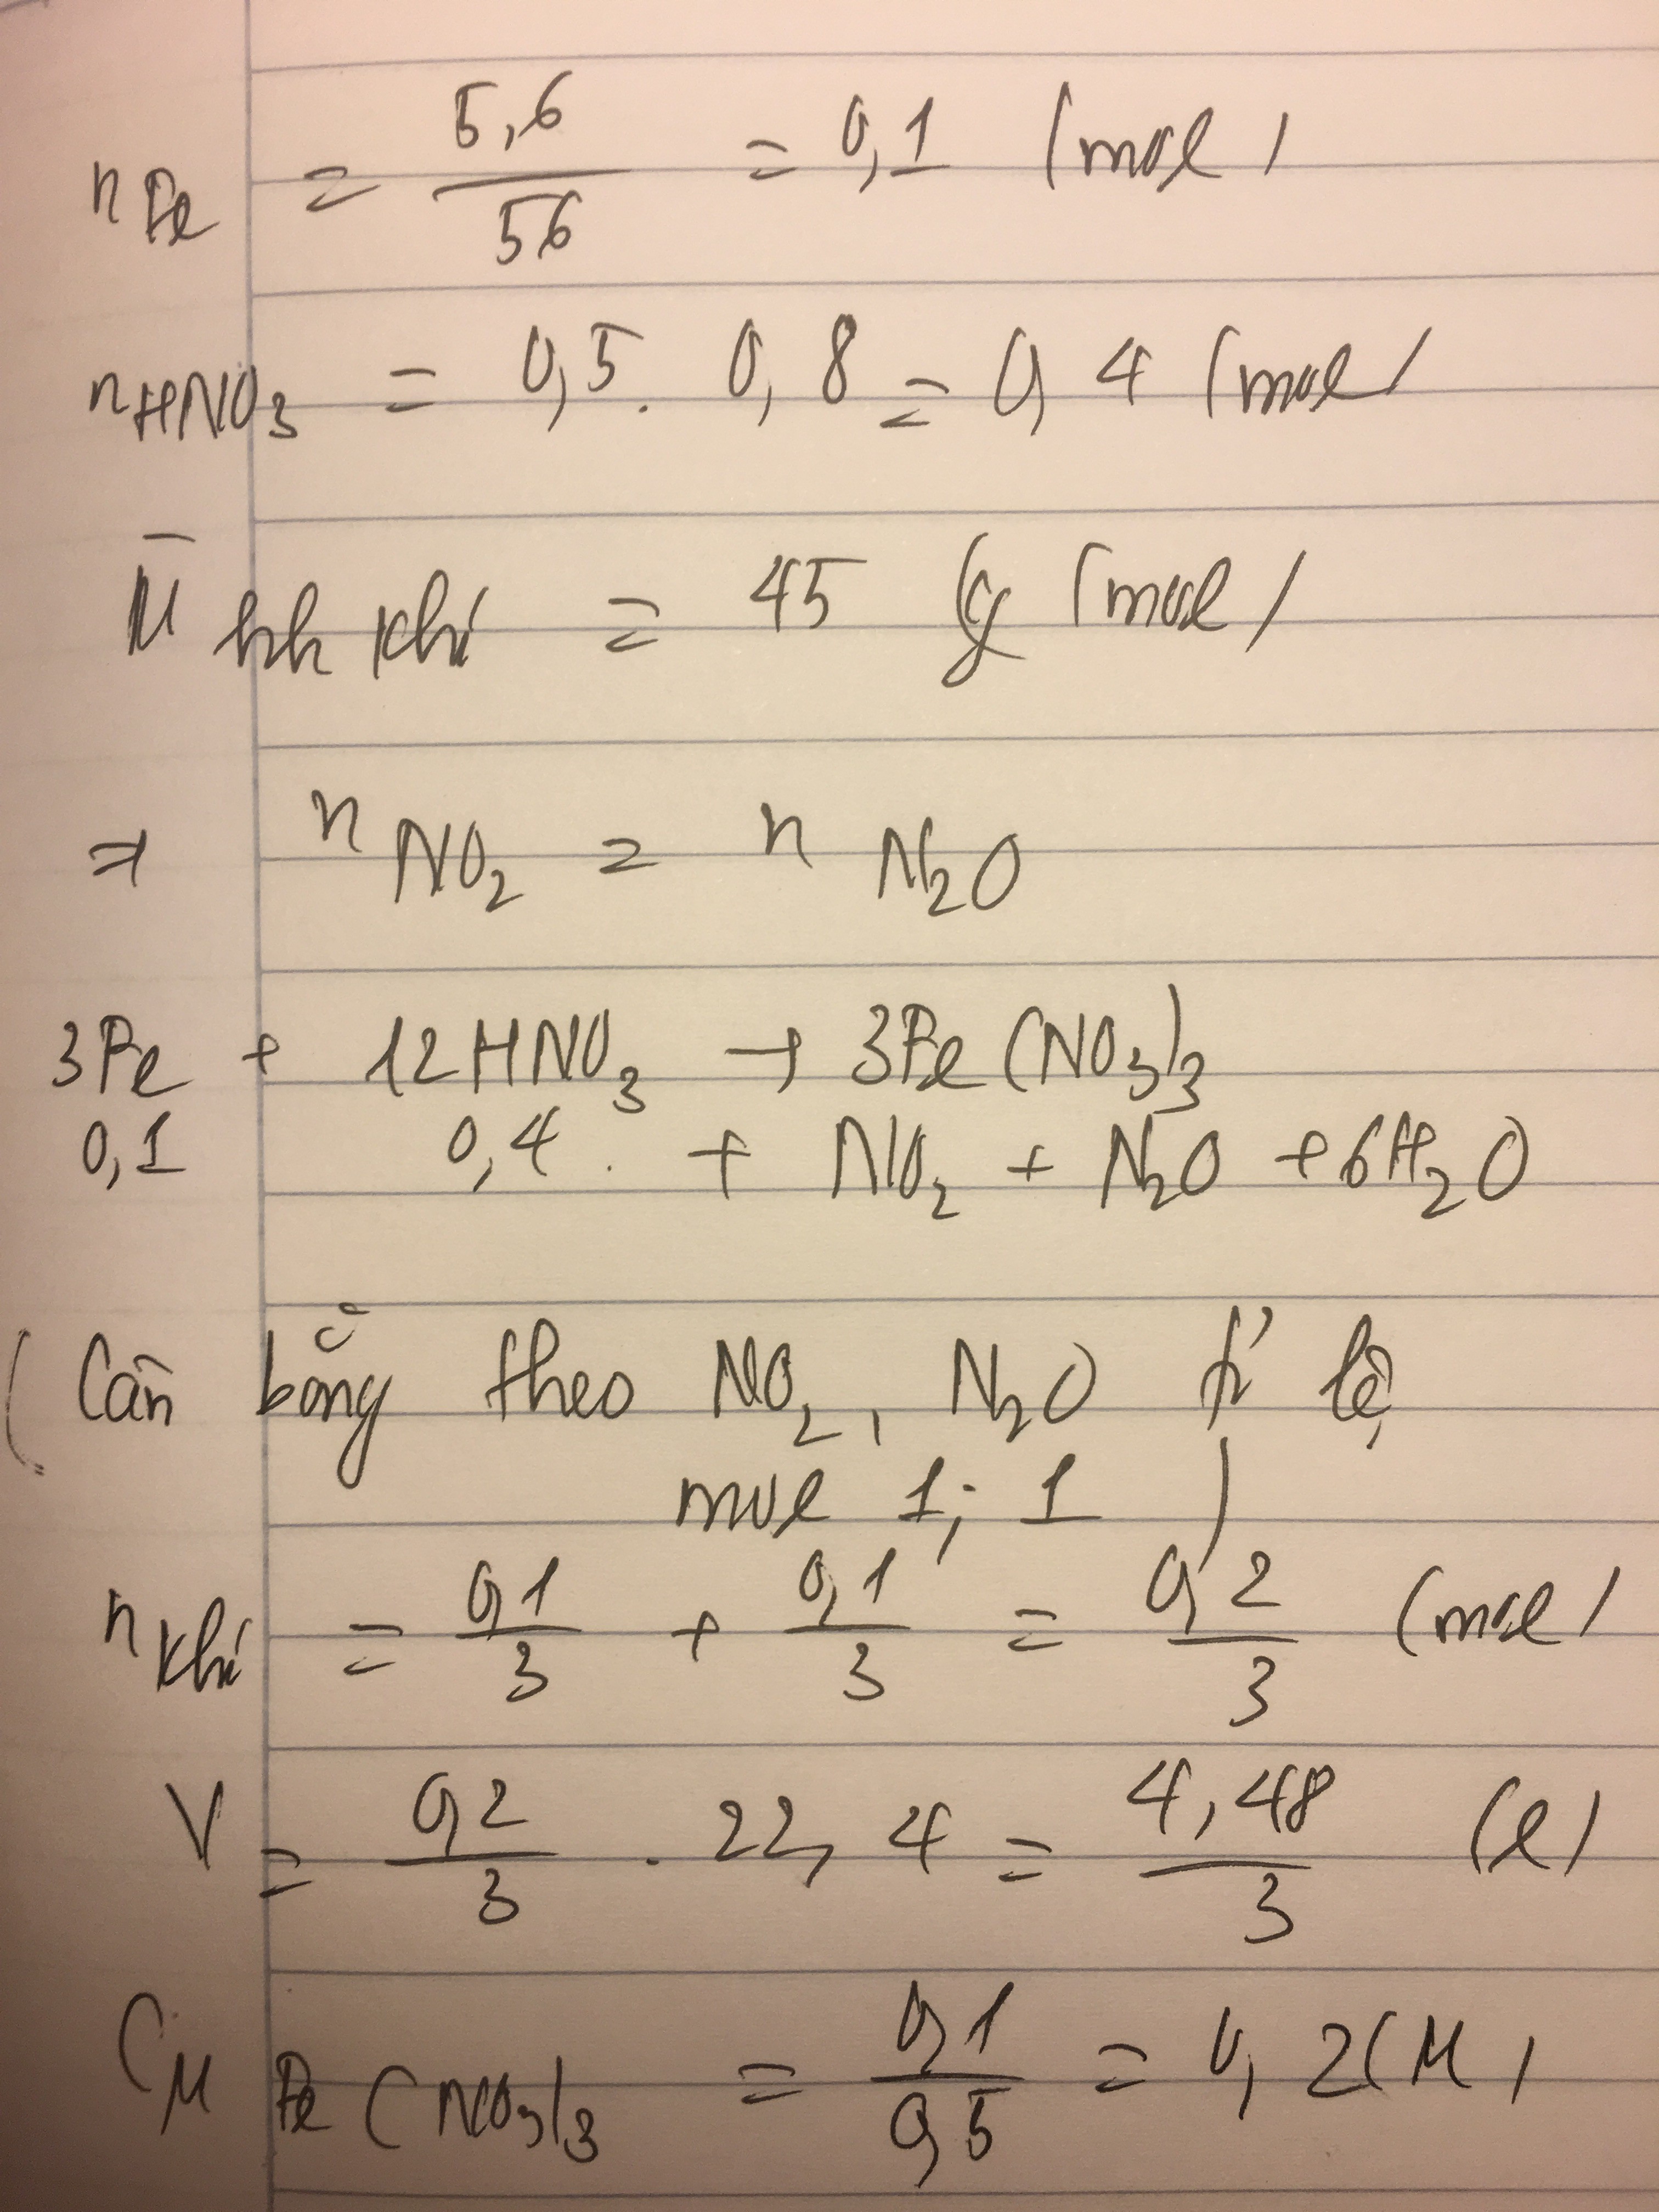 nFe = 5,6/56 = 0,1 (mol)
nHNO3 = 0,5 . 0,8 = 0,4 (mol)
M̄ hh khí = 45 (g/mol)
⇒ nNO2 = nN2O
3Fe + 12HNO3 → 3Fe(NO3)3
0,1 0,4 . + NO2 + N2O + 6H2O
(Cân bằng theo NO2, N2O tỉ lệ
mol 1:1)
nkhí = 0,1/3 + 0,1/3 = 0,2/3 (mol)
V = 0,2/3 . 22,4 = 4,48/3 (l)
CM Fe(NO3)3 = 0,1/0,5 = 0,2(M)